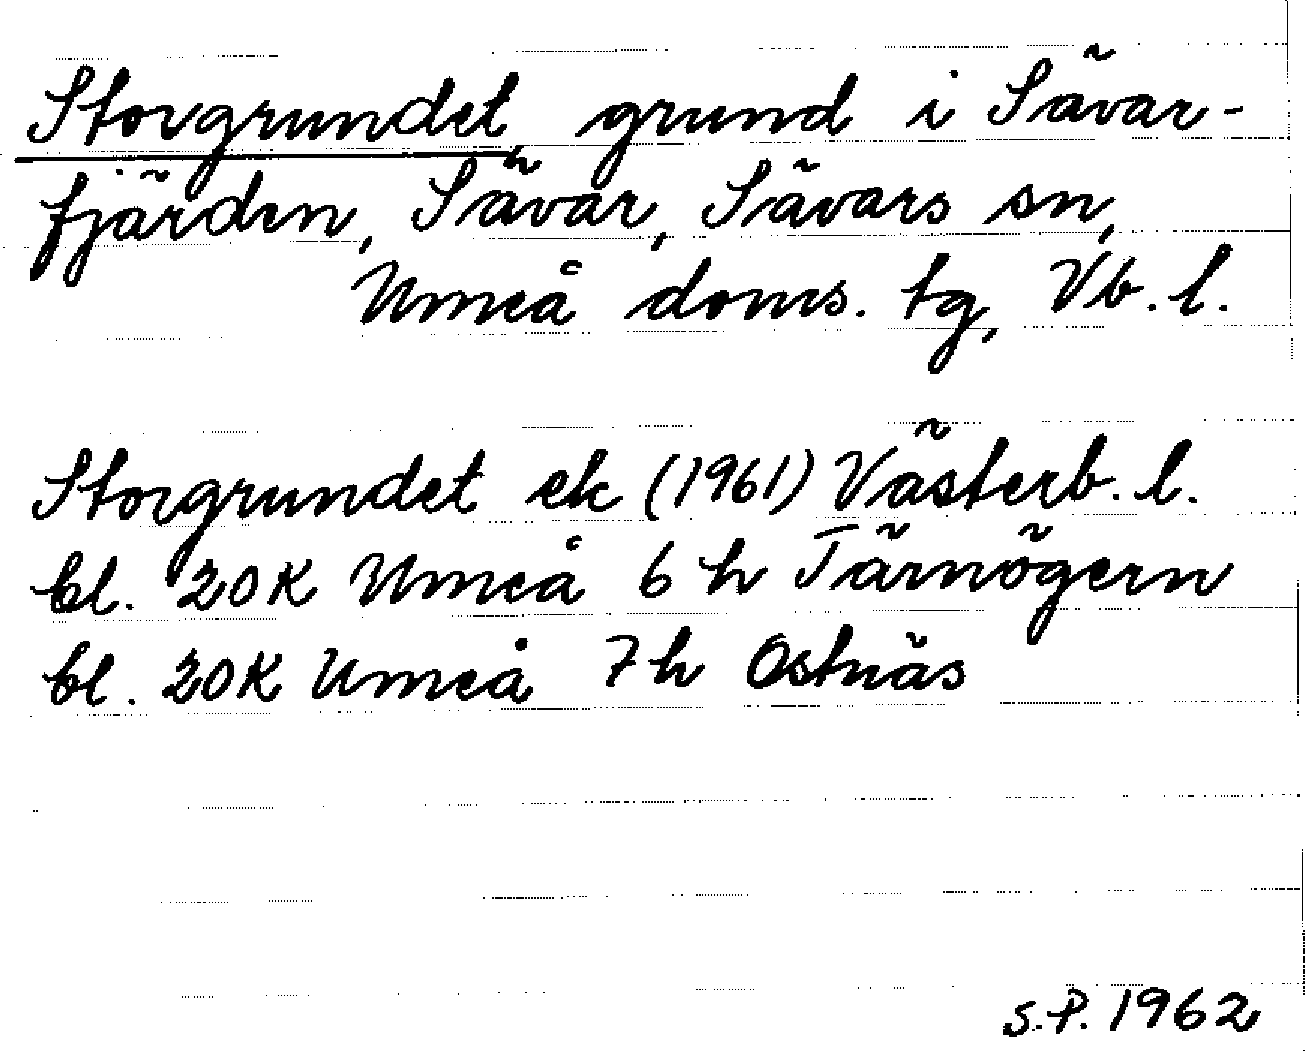 Storgrundet, grund i Sävar-
fjärden, Sävar, Sävars sn,
Umeå doms. tg, Vb. l.
Storgrundet ek (1961) Västerb. l.
bl. 20K Umeå 6h Tärnögern
bl. 20K Umeå 7h Ostnäs
S.P. 1962